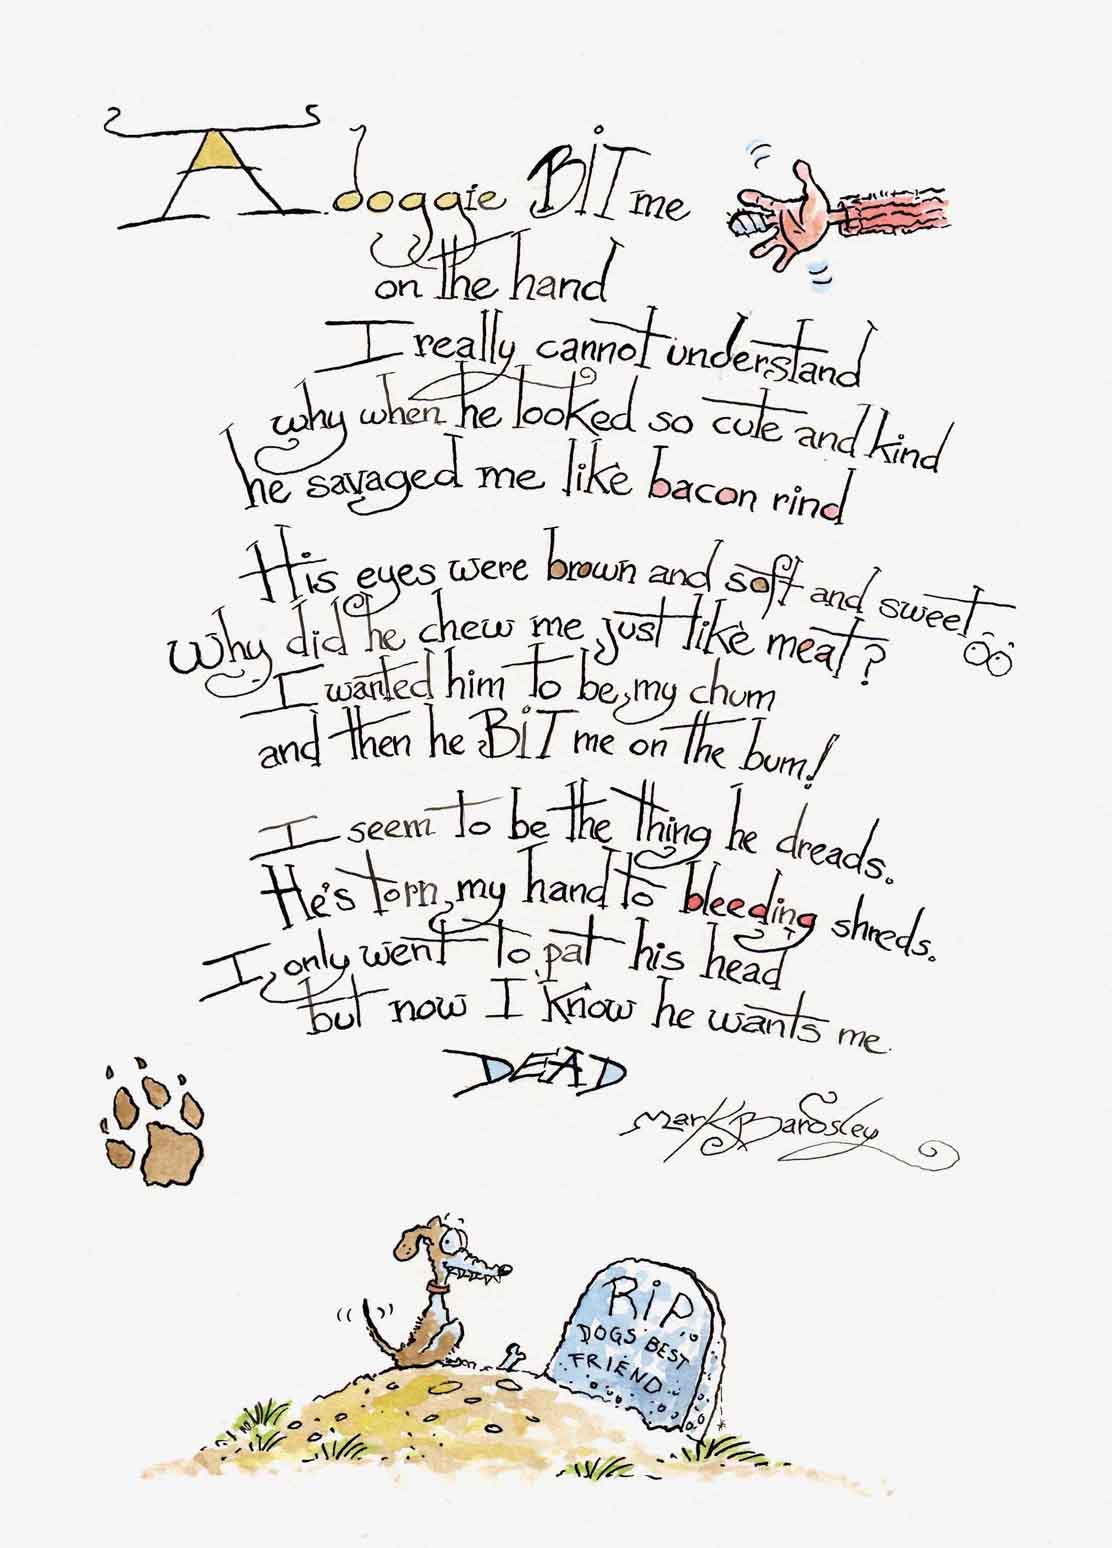 A doggie BiT me
on the hand
I really cannot understand
why when he looked so cute and kind
he savaged me like bacon rind
His eyes were brown and soft and sweet
Why did he chew me just like meat?
I wanted him to be my chum
and then he BiT me on the bum!
I seem to be the thing he dreads.
He's torn my hand to bleeding shreds.
I only went to pat his head
but now I know he wants me
DEAD
Mark Bardsley
RiP
DOGS BEST
FRIEND